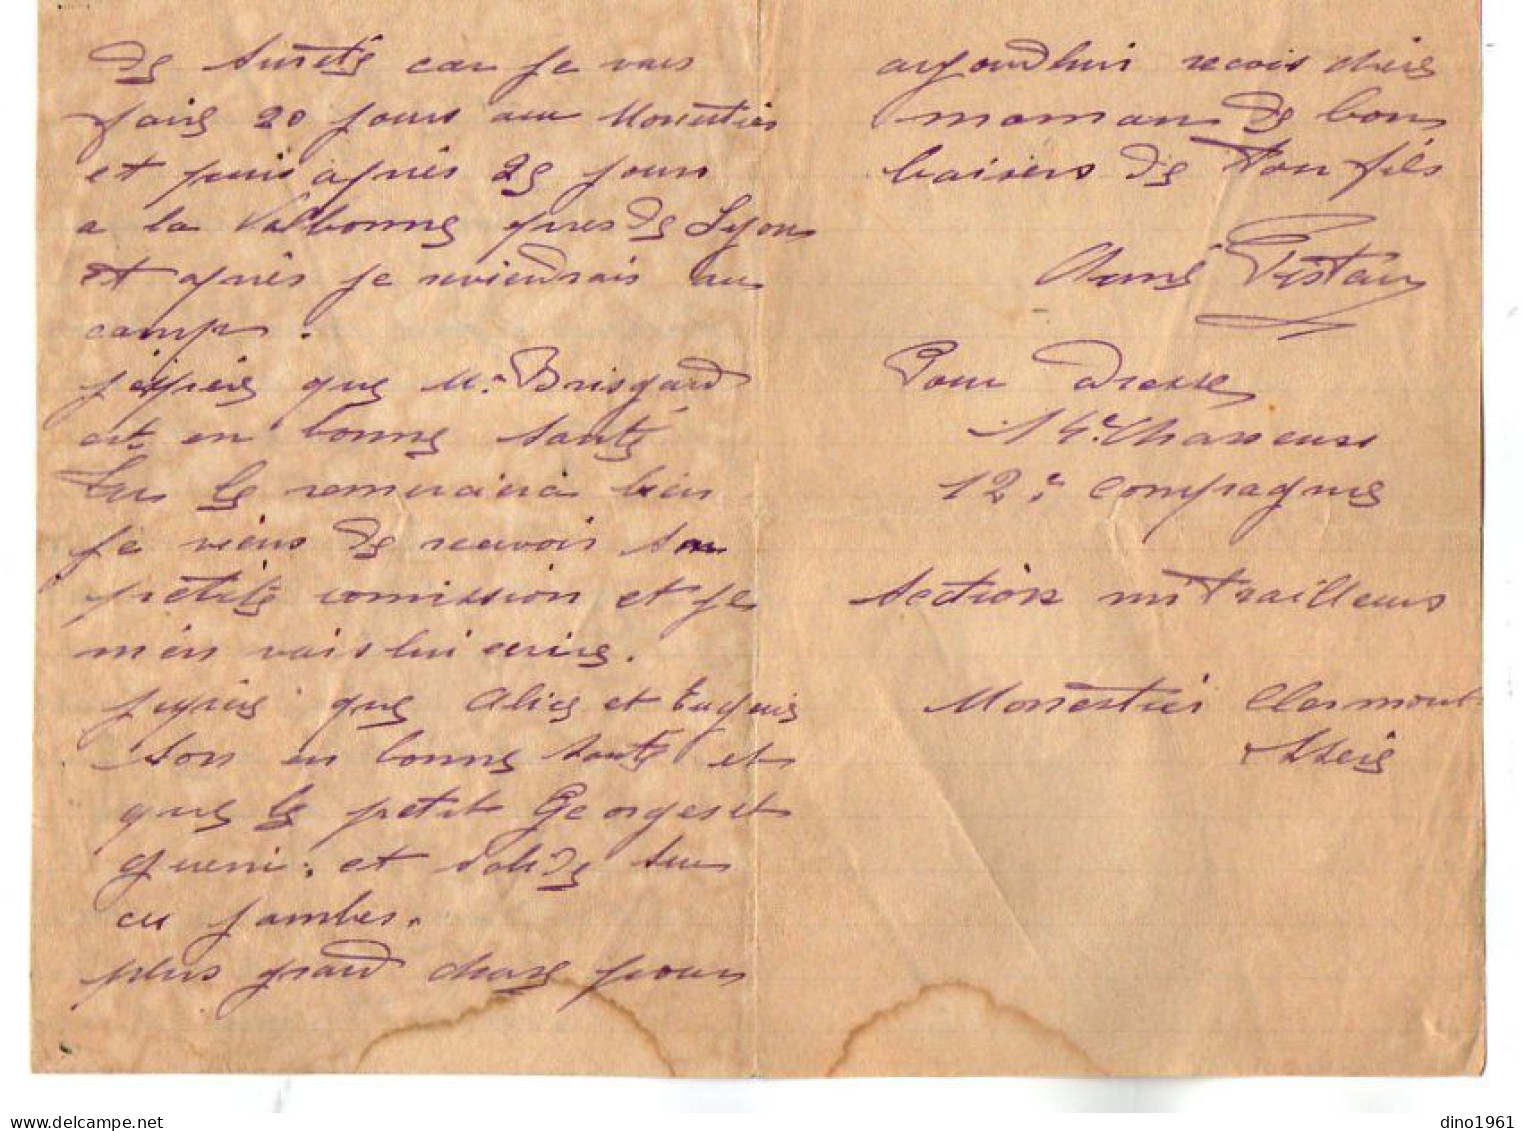 de sureté car je vais
faire 20 jours au Monestier
et puis après 25 jours
a la Valbonne pres de Lyon
et après je reviendrais au
camp.
j'éspère que M. Brisgard
est en bonne santé
tu le remercieras bien
je viens de recevoir sa
petite comission et je
m'en vais lui ecrire.
jespère que Alice et Eugenie
son en bonne santé et
que le petit Georges et
gueri. et solide sur
ces jambes.
plus grand chose pour
aujourdhui recois chère
maman de bons
baisers de ton fils
Aimé Pestau
Pour adresse
14e Chasseurs
12e compagnie
section mitrailleurs
Monestier Clermont
Isère
dino1961